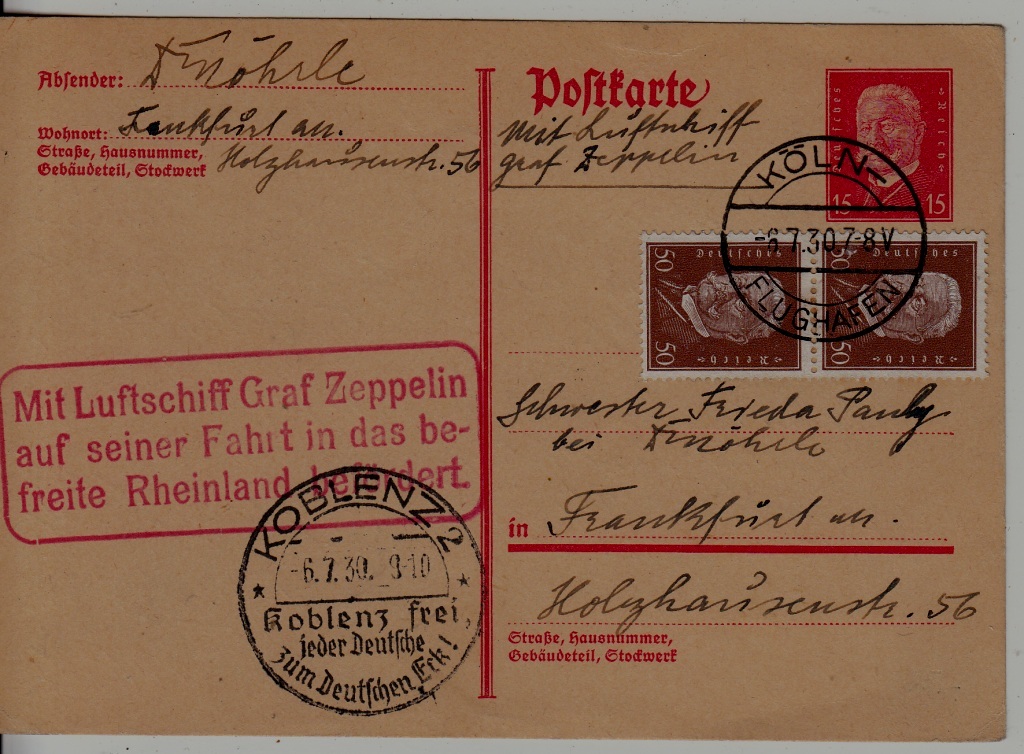 Absender: Dr Nöhrle
Wohnort: Frankfurt a m.
Straße, Hausnummer,
Gebäudeteil, Stockwerk Holzhausenstr. 56
Postkarte
Mit Luftschiff
Graf Zeppelin
Deutsches Reich
15 15
KÖLN 1
-6.7.30.7-8V
FLUGHAFEN
50 Deutsches 50 Deutsches
50 Reich 50 Reich
Mit Luftschiff Graf Zeppelin
auf seiner Fahrt in das be-
freite Rheinland befördert.
KOBLENZ 2
-6.7.30. 9-10
Koblenz frei,
jeder Deutsche
zum Deutschen Eck!
Schwester Frieda Pauly
bei Dr Nöhrle
in Frankfurt a m.
Holzhausenstr. 56
Straße, Hausnummer,
Gebäudeteil, Stockwerk